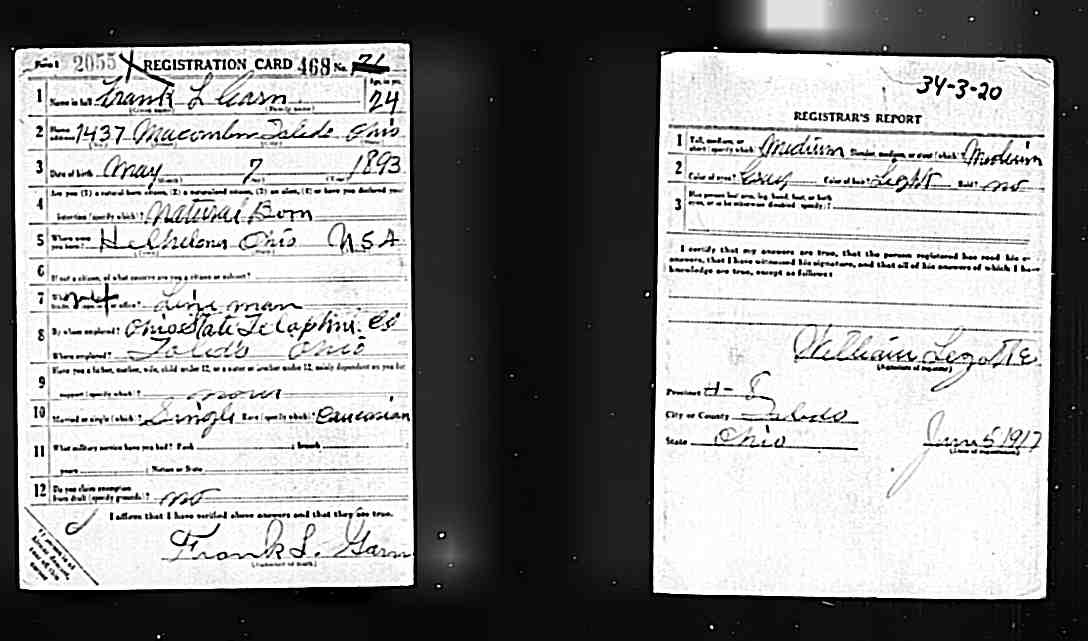 Form 1 2055 REGISTRATION CARD 468 No. 76
1 Name in full Frank L Garn Age, in yrs. 24
(Given name) (Family name)
2 Home address 1437 Macomber Toledo Ohio
3 Date of birth May 7 1893
(Month) (Day) (Year)
Are you (1) a natural born citizen, (2) a naturalized citizen, (3) an alien, (4) or have you declared your
4 intention (specify which)? Natural Born
5 Where were you born? Ohio USA
6 If not a citizen, of what country are you a citizen or subject?
7 Line man
8 By whom employed? Ohio State Telephone Co
Where employed? Toledo Ohio
9 Have you a father, mother, wife, child under 12, or a sister or brother under 12, solely dependent on you for
support (specify which)? none
10 Married or single (which)? Single Race (specify which)? Caucasian
11 What military service have you had? Rank ; branch ;
years ; Nation or State
12 Do you claim exemption from draft (specify grounds)? no
I affirm that I have verified above answers and that they are true.
Frank L. Garn
(Signature or mark)
34-3-20
REGISTRAR'S REPORT
1 Tall, medium, or short (specify which)? Medium Slender, medium, or stout (which)? Medium
2 Color of eyes? Grey Color of hair? Light Bald? no
3 Has person lost arm, leg, hand, foot, or both
eyes, or is he otherwise disabled (specify)?
I certify that my answers are true, that the person registered has read his own
answers, that I have witnessed his signature, and that all of his answers of which I have
knowledge are true, except as follows:
William Legotte
(Signature of registrar)
Precinct H-
City or County Toledo
State Ohio June 5 1917
(Date of registration)